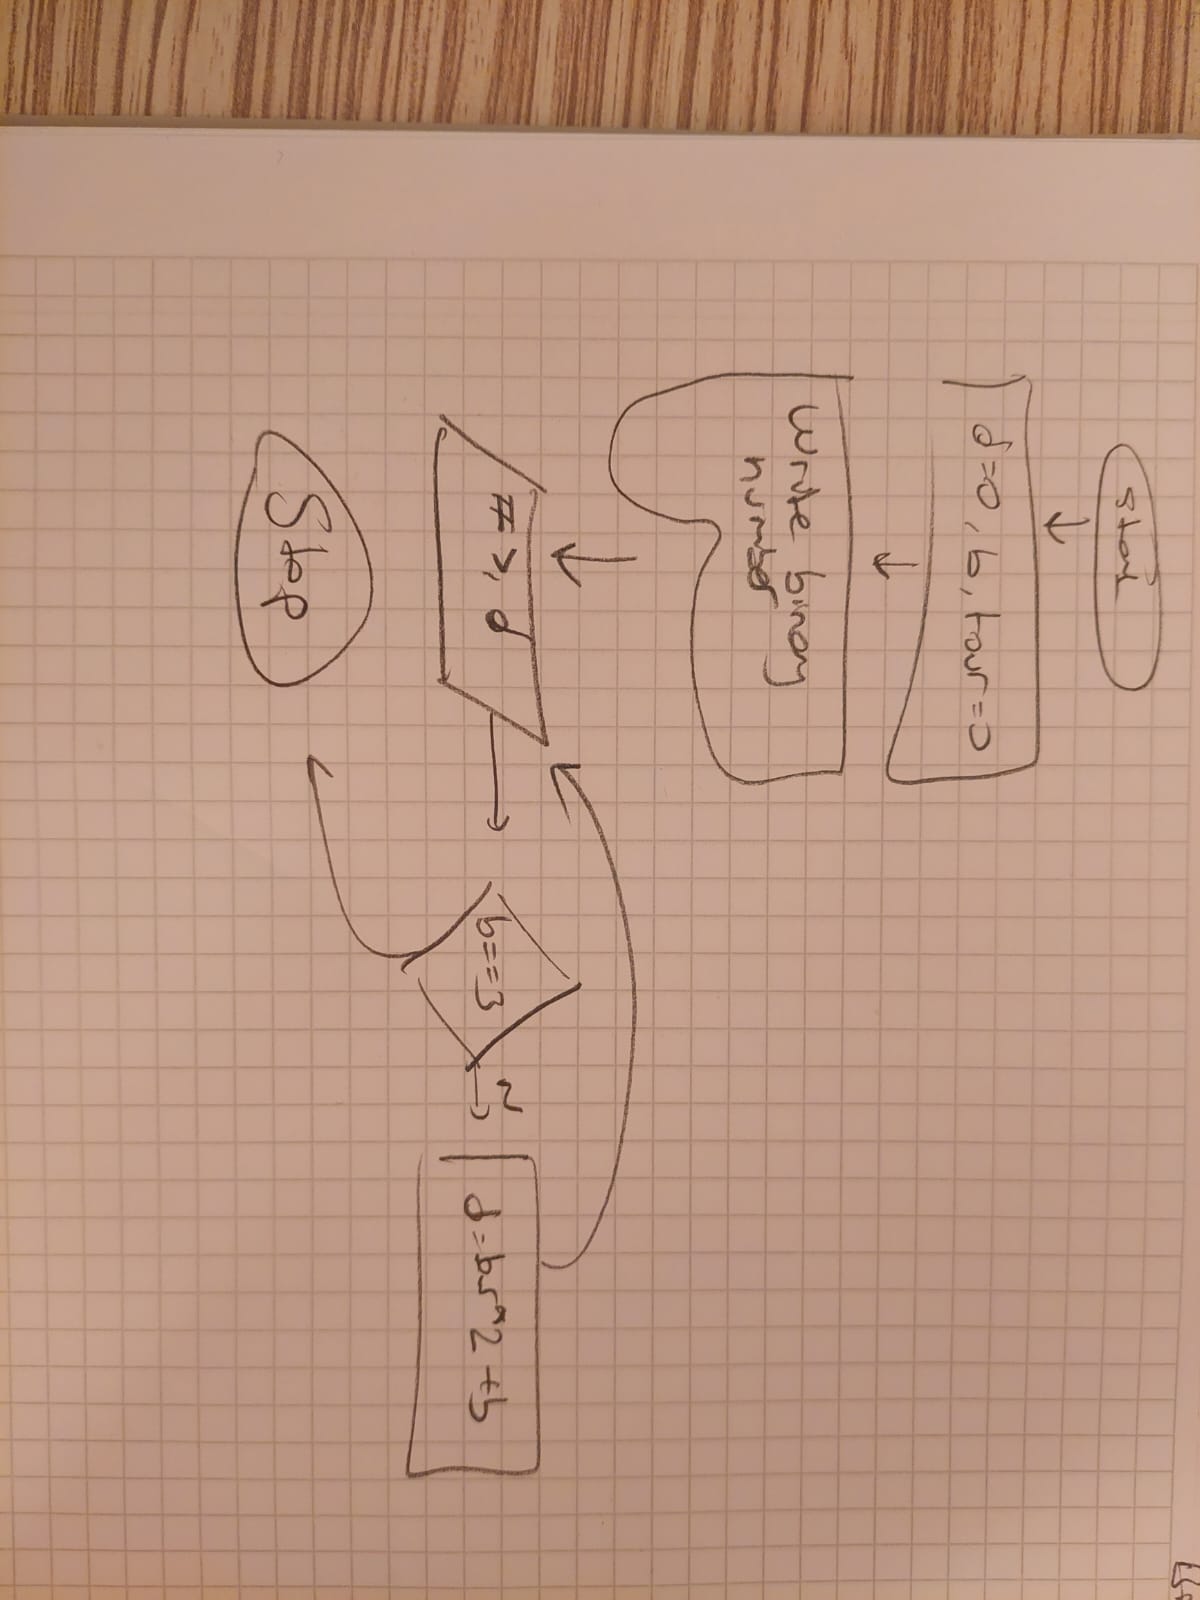 Start
d=0, b, tour=0
Write binary
number
d
b==3
N
Stop